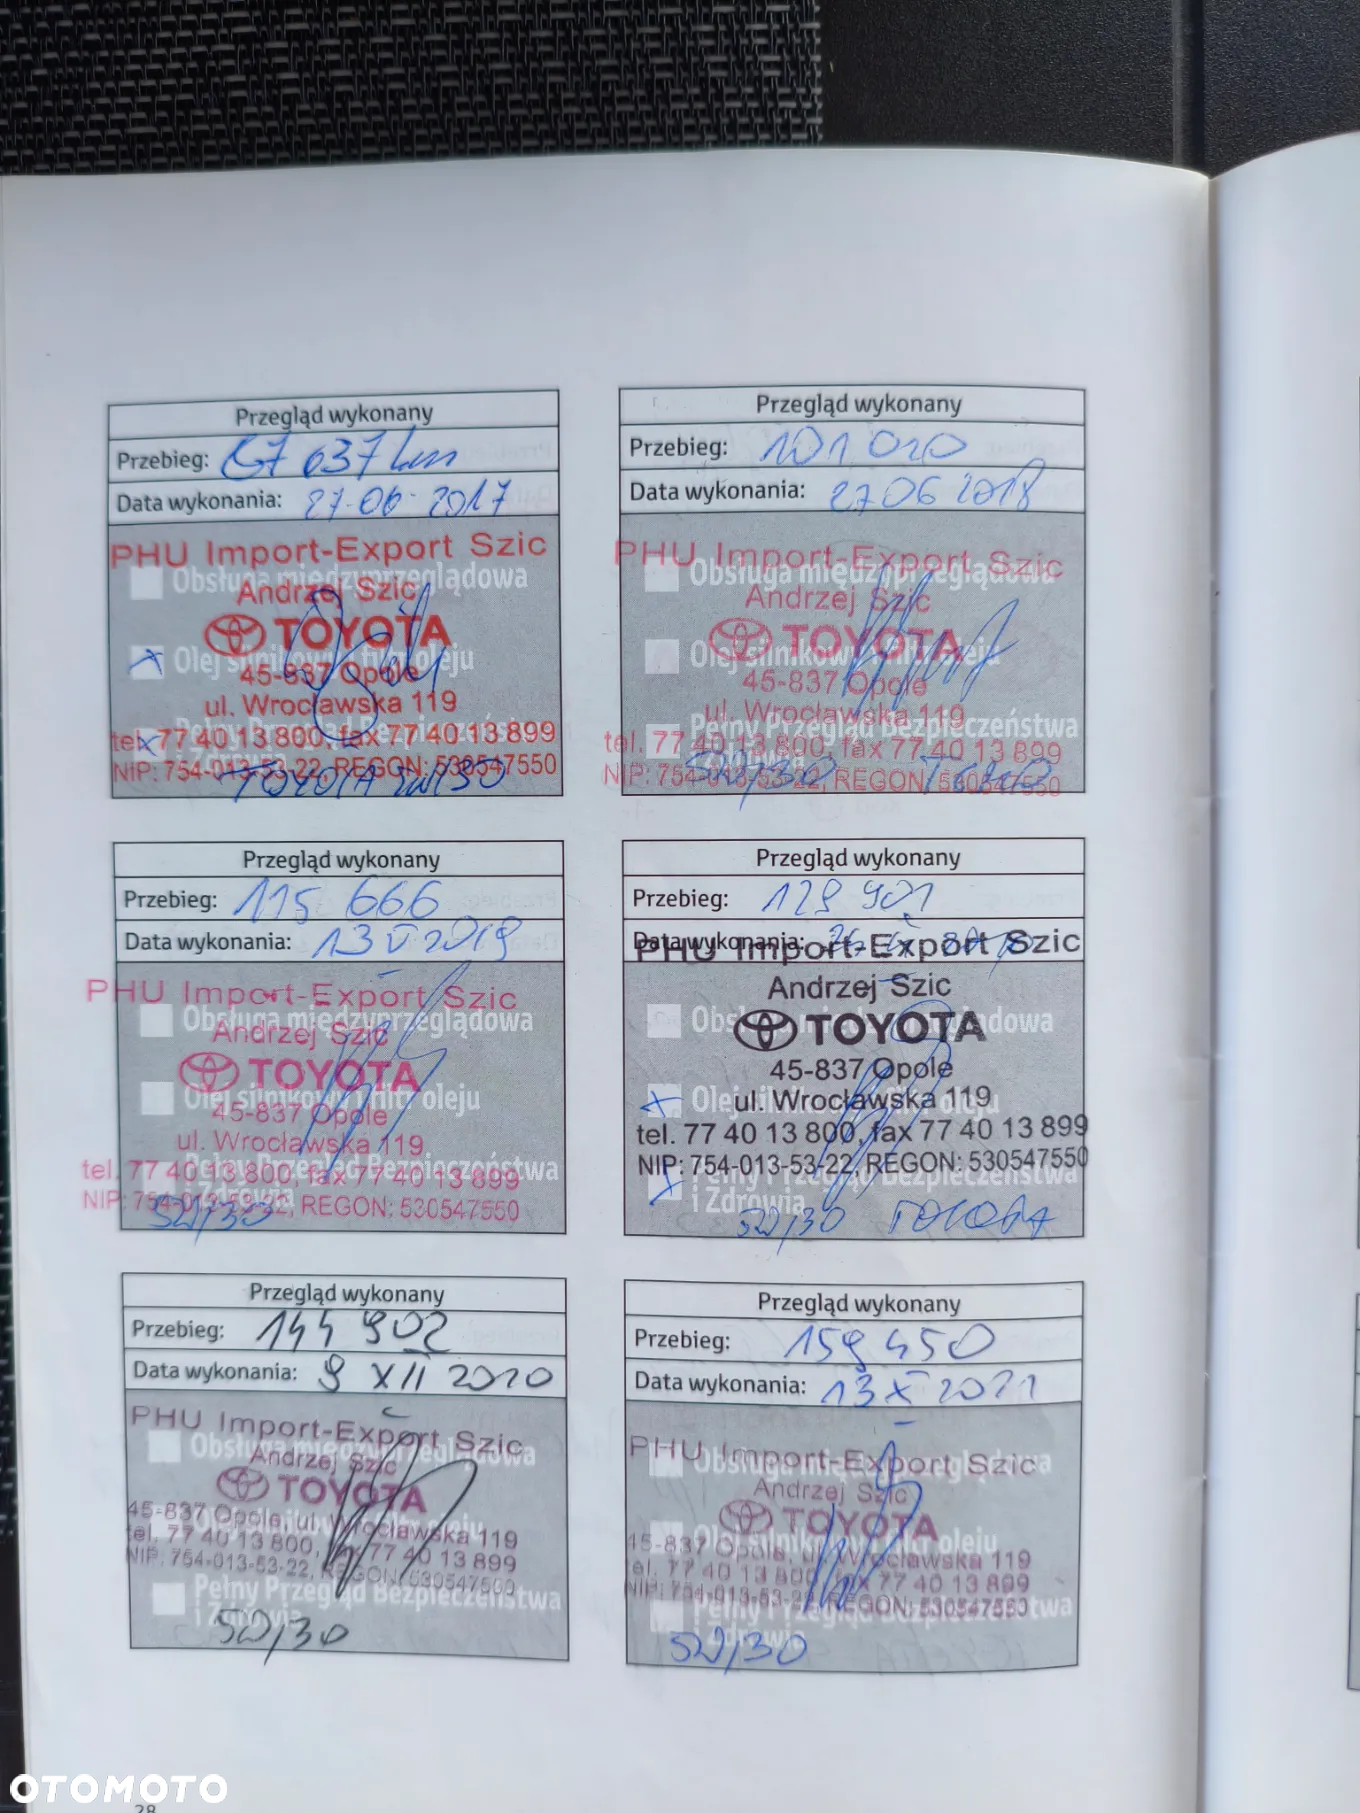 Przegląd wykonany
Przebieg: 67 637 km
Data wykonania: 27-06-2017
PHU Import-Export Szic
Obsługa międzyprzeglądowa
Andrzej Szic
TOYOTA
Olej silnikowy i filtr oleju
45-837 Opole
ul. Wrocławska 119
Pełny Przegląd Bezpieczeństwa
tel. 77 40 13 800, fax 77 40 13 899
i Zdrowia
NIP: 754-013-53-22, REGON: 530547550
TOYOTA 5W/30
Przegląd wykonany
Przebieg: 101 010
Data wykonania: 27 06 2018
PHU Import-Export Szic
Obsługa międzyprzeglądowa
Andrzej Szic
TOYOTA
Olej silnikowy i filtr oleju
45-837 Opole
ul. Wrocławska 119
Pełny Przegląd Bezpieczeństwa
tel. 77 40 13 800, fax 77 40 13 899
i Zdrowia
NIP: 754-013-53-22, REGON: 530547550
5W/30
Przegląd wykonany
Przebieg: 115 666
Data wykonania: 13 V 2019
PHU Import-Export Szic
Obsługa międzyprzeglądowa
Andrzej Szic
TOYOTA
Olej silnikowy i filtr oleju
45-837 Opole
ul. Wrocławska 119
Pełny Przegląd Bezpieczeństwa
tel. 77 40 13 800, fax 77 40 13 899
i Zdrowia
NIP: 754-013-53-22, REGON: 530547550
5W/30
Przegląd wykonany
Przebieg: 129 901
Data wykonania:
PHU Import-Export Szic
Andrzej Szic
Obsługa międzyprzeglądowa
TOYOTA
45-837 Opole
Olej silnikowy i filtr oleju
ul. Wrocławska 119
tel. 77 40 13 800, fax 77 40 13 899
NIP: 754-013-53-22, REGON: 530547550
Pełny Przegląd Bezpieczeństwa
i Zdrowia
5W/30 TOYOTA
Przegląd wykonany
Przebieg: 144 902
Data wykonania: 9 XII 2020
PHU Import-Export Szic
Obsługa międzyprzeglądowa
Andrzej Szic
TOYOTA
45-837 Opole, ul. Wrocławska 119
Olej silnikowy i filtr oleju
tel. 77 40 13 800, fax 77 40 13 899
NIP: 754-013-53-22, REGON: 530547550
Pełny Przegląd Bezpieczeństwa
i Zdrowia
5W/30
Przegląd wykonany
Przebieg: 159 450
Data wykonania: 13 X 2021
PHU Import-Export Szic
Obsługa międzyprzeglądowa
Andrzej Szic
TOYOTA
Olej silnikowy i filtr oleju
45-837 Opole, ul. Wrocławska 119
tel. 77 40 13 800, fax 77 40 13 899
NIP: 754-013-53-22, REGON: 530547550
Pełny Przegląd Bezpieczeństwa
i Zdrowia
5W/30
OTOMOTO
28